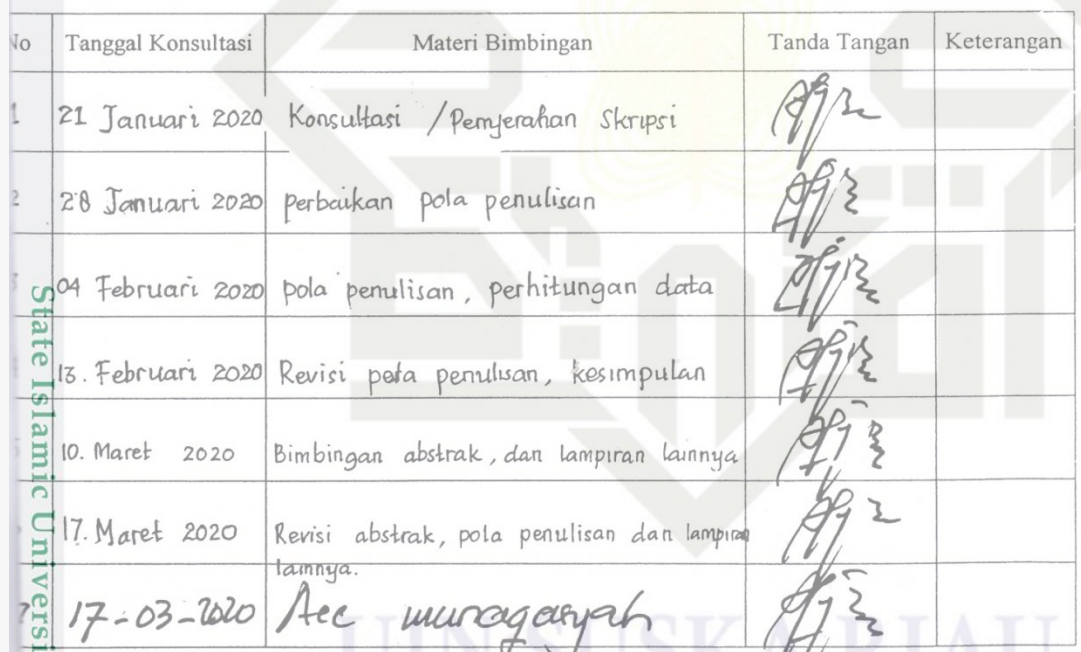 No Tanggal Konsultasi Materi Bimbingan Tanda Tangan Keterangan
1 21 Januari 2020 Konsultasi / Penyerahan Skripsi
2 28 Januari 2020 perbaikan pola penulisan
04 Februari 2020 pola penulisan, perhitungan data
13. Februari 2020 Revisi pola penulisan, kesimpulan
10. Maret 2020 Bimbingan abstrak, dan lampiran lainnya
17. Maret 2020 Revisi abstrak, pola penulisan dan lampiran
lainnya.
7 17-03-2020 Acc munaqasyah
State Islamic Universi
UIN SUSKA RIAU